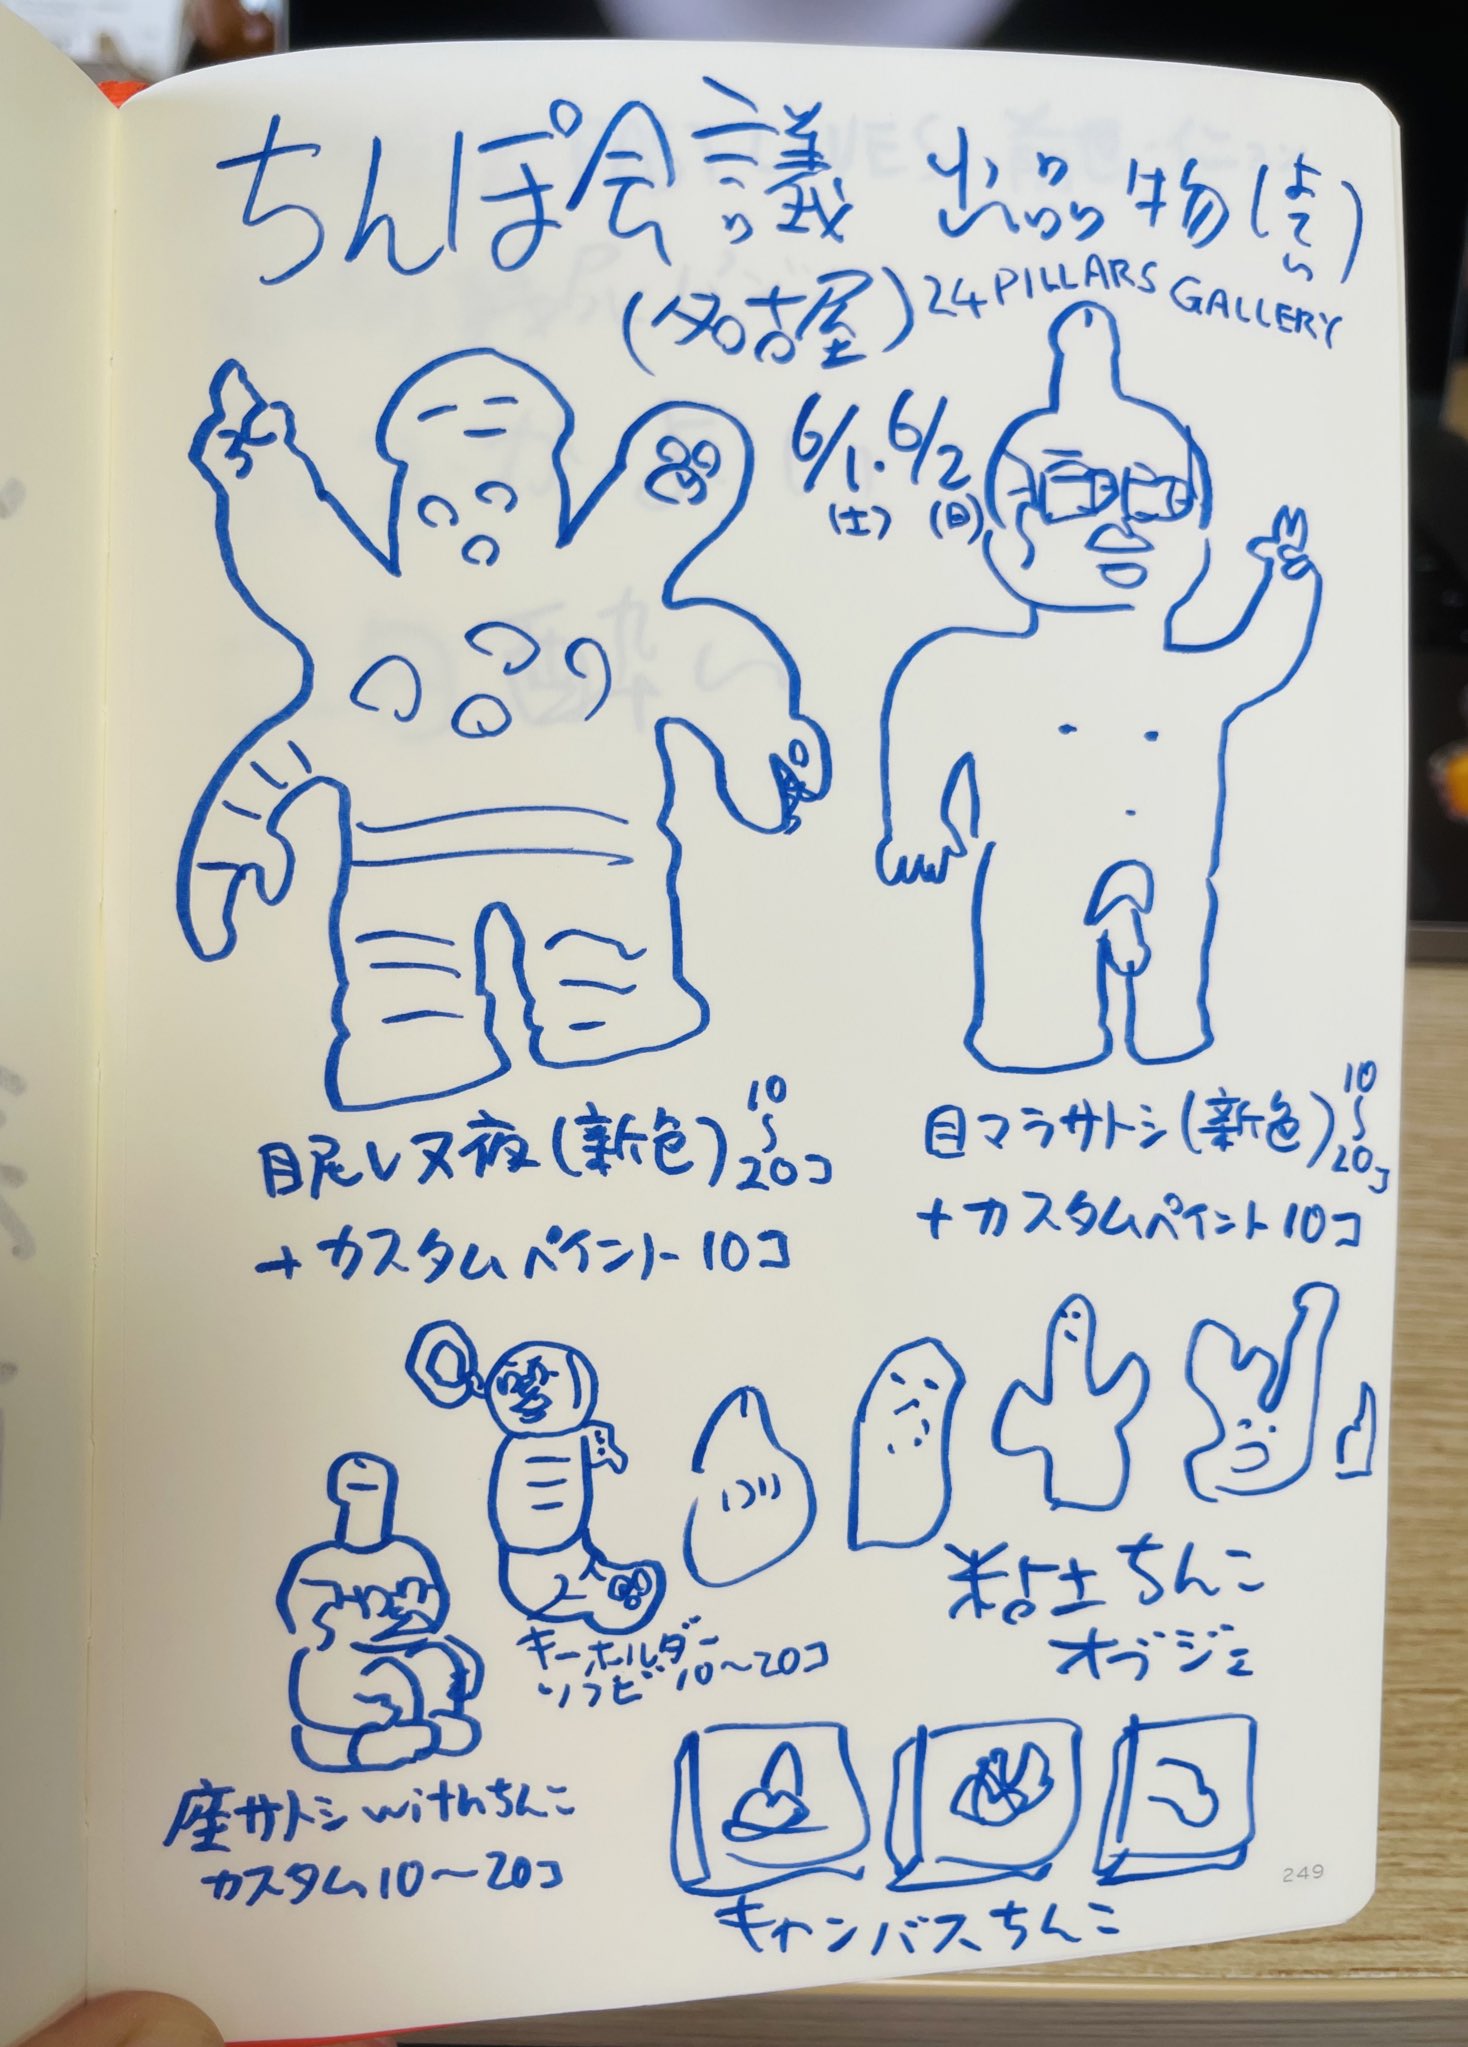 ちんぽ会議 出品物(よてい)
(名古屋) 24 PILLARS GALLERY
6/1. 6/2
(土) (日)
目尻レヌ夜(新色) 10〜20コ
+カスタムペイント10コ
目マラサトシ(新色) 10〜20コ
+カスタムペイント10コ
キーホルダー
ソフビ 10〜20コ
粘土ちんこ
オブジェ
座サトシ withちんこ
カスタム10〜20コ
キャンバスちんこ
249